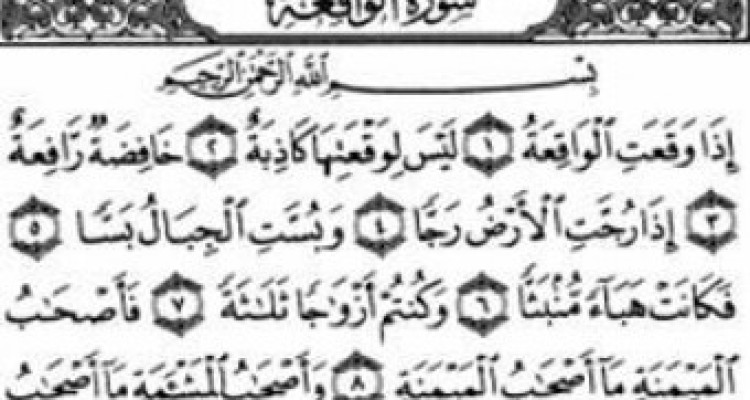 سورة الواقعة
بِسْمِ ٱللَّهِ ٱلرَّحْمَٰنِ ٱلرَّحِيمِ
إِذَا وَقَعَتِ ٱلْوَاقِعَةُ ١ لَيْسَ لِوَقْعَتِهَا كَاذِبَةٌ ٢ خَافِضَةٌ رَّافِعَةٌ
٣ إِذَا رُجَّتِ ٱلْأَرْضُ رَجًّا ٤ وَبُسَّتِ ٱلْجِبَالُ بَسًّا ٥
فَكَانَتْ هَبَآءً مُّنۢبَثًّا ٦ وَكُنتُمْ أَزْوَٰجًا ثَلَٰثَةً ٧ فَأَصْحَٰبُ
ٱلْمَيْمَنَةِ مَآ أَصْحَٰبُ ٱلْمَيْمَنَةِ ٨ وَأَصْحَٰبُ ٱلْمَشْـَٔمَةِ مَآ أَصْحَٰبُ